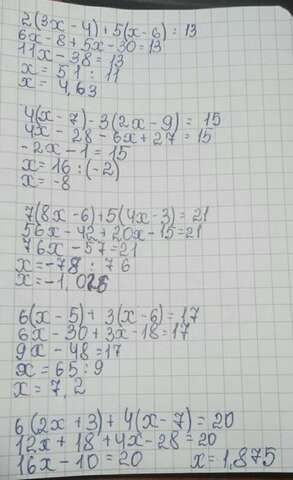 2(3x-4)+5(x-6)=13
6x-8+5x-30=13
11x-38=13
x=51:11
x=4,63
4(x-7)-3(2x-9)=15
4x-28-6x+27=15
-2x-1=15
x=16:(-2)
x=-8
7(8x-6)+5(4x-3)=21
56x-42+20x-15=21
76x-57=21
x=-78:76
x=-1,026
6(x-5)+3(x-6)=17
6x-30+3x-18=17
9x-48=17
x=65:9
x=7,2
6(2x+3)+4(x-7)=20
12x+18+4x-28=20
16x-10=20 x=1,875